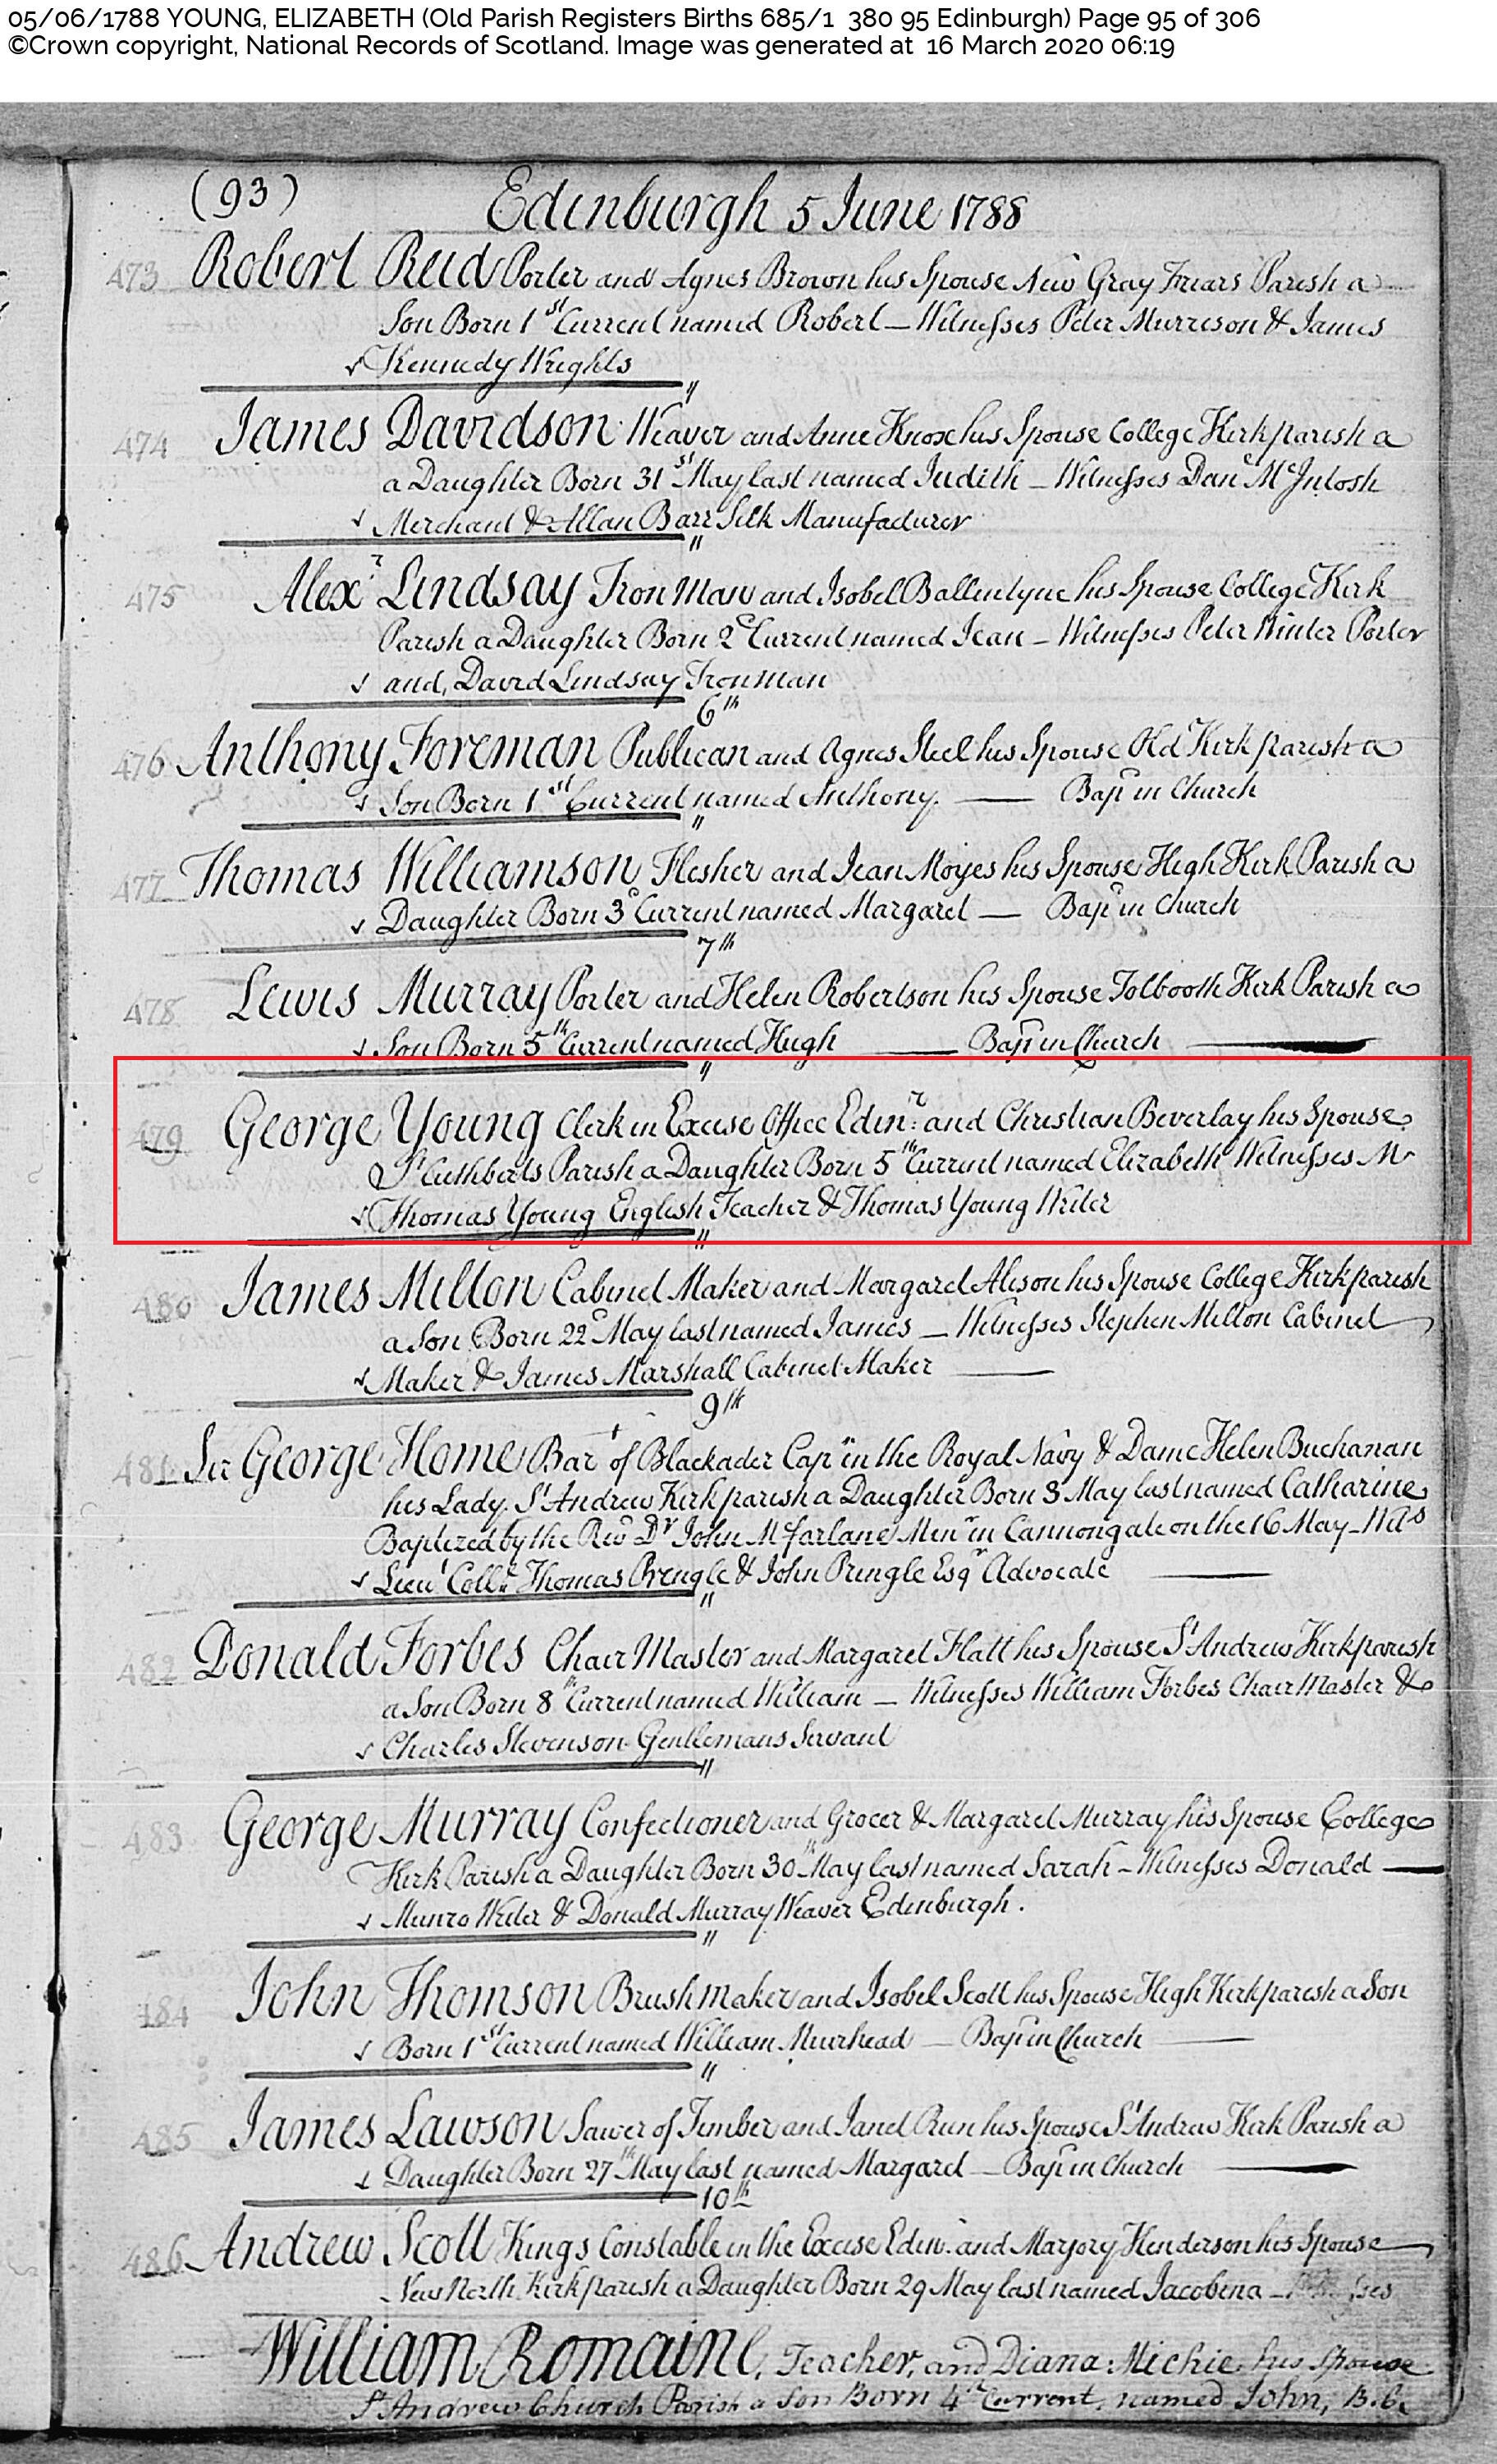 05/06/1788 YOUNG, ELIZABETH (Old Parish Registers Births 685/1 380 95 Edinburgh) Page 95 of 306
©Crown copyright, National Records of Scotland. Image was generated at 16 March 2020 06:19
(93) Edinburgh 5 June 1788
473 Robert Reid Porter and Agnes Brown his Spouse New Gray Friars Parish a
Son Born 1st Current named Robert — Witnesses Peter Murrison & James
Kennedy Wrights
"
474 James Davidson Weaver and Anne Knox his Spouse College Kirk parish a
a Daughter Born 31st May last named Judith — Witnesses Danl McIntosh
Merchant & Allan Barr Silk Manufacturer
"
475 Alexr Lindsay Tron Man and Isobel Ballentyne his Spouse College Kirk
Parish a Daughter Born 2d Current named Jean — Witnesses Peter Winter Porter
and David Lindsay Tronman
6th
476 Anthony Foreman Publican and Agnes Steel his Spouse Old Kirk parish a
Son Born 1st Current named Anthony. — Bap in Church
"
477 Thomas Williamson Flesher and Jean Moyes his Spouse High Kirk Parish a
Daughter Born 3d Current named Margaret — Bap in Church
7th
478 Lewis Murray Porter and Helen Robertson his Spouse Tolbooth Kirk Parish a
Son Born 5th Current named Hugh — Bap in Church —
"
479 George Young Clerk in Excise Office Edinr: and Christian Beverlay his Spouse
St Cuthberts Parish a Daughter Born 5th Current named Elizabeth Witnesses Mr
Thomas Young English Teacher & Thomas Young Writer
"
480 James Milton Cabinet Maker and Margaret Alison his Spouse College Kirk parish
a Son Born 22d May last named James — Witnesses Stephen Milton Cabinet
Maker & James Marshall Cabinet Maker —
9th
481 Sir George Home Bart of Blackader Capn in the Royal Navy & Dame Helen Buchanan
his Lady. St Andrew Kirk parish a Daughter Born 3 May last named Catharine
Baptized by the Revd Dr John Mcfarlane Minr in Cannongate on the 16 May — Wits
Lieut Coll. Thomas Pringle & John Pringle Esqr Advocate —
"
482 Donald Forbes Chair Master and Margaret Flatt his Spouse St Andrew Kirk parish
a Son Born 8th Current named William — Witnesses William Forbes Chair Master &
Charles Stevenson Gentlemans Servant
"
483 George Murray Confectioner and Grocer & Margaret Murray his Spouse College
Kirk Parish a Daughter Born 30th May last named Sarah — Witnesses Donald —
Munro Writer & Donald Murray Weaver Edinburgh.
"
484 John Thomson Brushmaker and Isobel Scott his Spouse High Kirk parish a Son
Born 1st Current named William Muirhead — Bap in Church —
"
485 James Lawson Sawer of Timber and Janet his Spouse St Andrew Kirk Parish a
Daughter Born 27th May last named Margaret — Bap in Church —
10th
486 Andrew Scott Kings Constable in the Excise Edinr. and Marjory Henderson his Spouse
New North Kirk parish a Daughter Born 29 May last named Jacobina —
William Romaine, Teacher, and Diana Michie his Spouse
St Andrew Church Parish a Son Born 4th Current, named John,